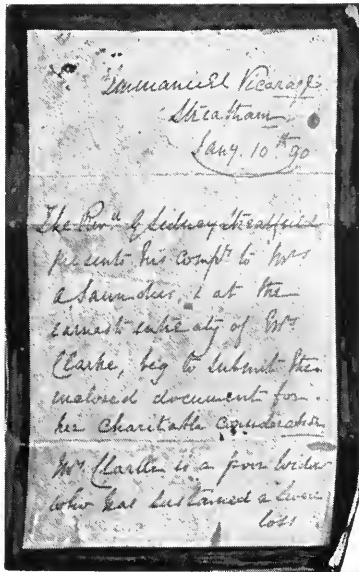 Immanuel Vicarage
Streatham
Jany. 10th 90
The Revd. G Sidney Streatfeild
presents his compts to Mrs
A Saunders, & at the
earnest entreaty of Mrs
Clarke, beg to submit the
enclosed document for
her charitable consideration
Mrs. Clarke is a poor widow
who has sustained a severe
loss